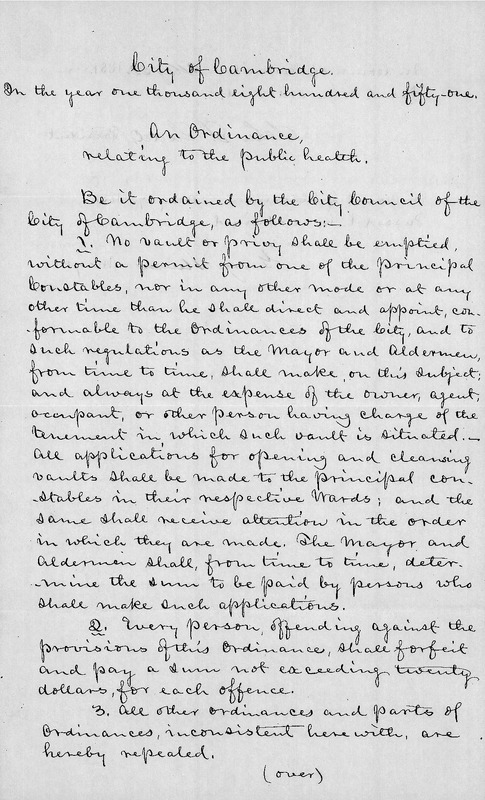 City of Cambridge.
In the year one thousand eight hundred and fifty-one.
An Ordinance,
relating to the public health.
Be it ordained by the City Council of the
City of Cambridge, as follows:—
1. No vault or privy shall be emptied,
without a permit from one of the Principal
Constables, nor in any other mode or at any
other time than he shall direct and appoint, con-
-formable to the Ordinances of the City, and to
such regulations as the Mayor and Aldermen,
from time to time, shall make, on this subject;
and always at the expense of the owner, agent,
occupant, or other person having charge of the
tenement in which such vault is situated.—
All applications for opening and cleansing
vaults shall be made to the principal con-
-stables in their respective Wards; and the
same shall receive attention in the order
in which they are made. The Mayor and
Aldermen shall, from time to time, deter-
-mine the sum to be paid by persons who
shall make such applications.
2. Every person, offending against the
provisions of this Ordinance, shall forfeit
and pay a sum not exceeding twenty
dollars, for each offence.
3. All other ordinances and parts of
Ordinances, inconsistent herewith, are
hereby repealed.
(over)